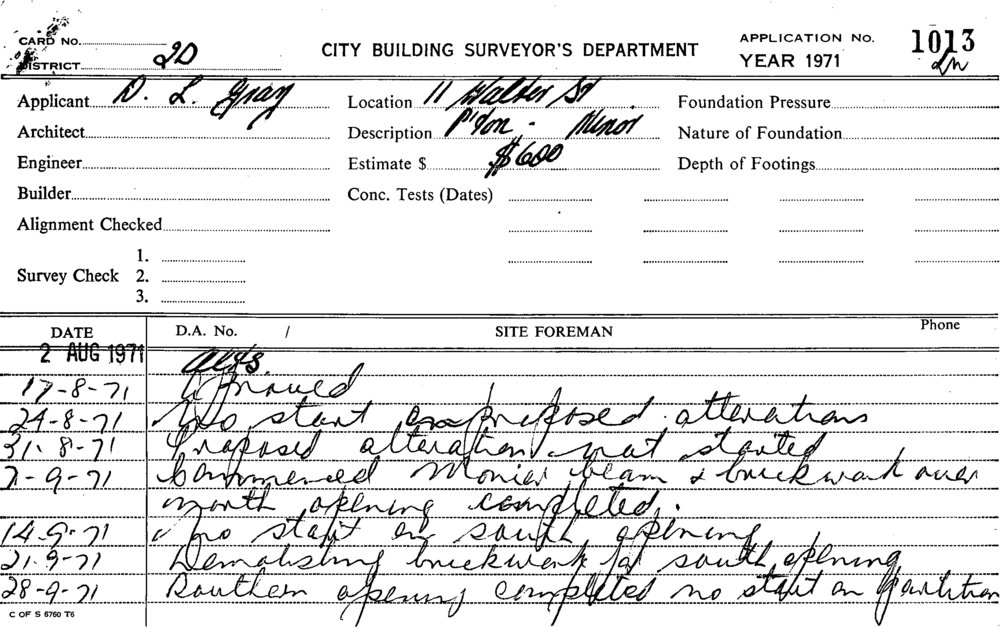 CARD No. 2D CITY BUILDING SURVEYOR'S DEPARTMENT APPLICATION No. 1013
DISTRICT YEAR 1971
Applicant D. L. Gray Location 11 Walter St Foundation Pressure
Architect Description P'ton - Minor Nature of Foundation
Engineer Estimate $ $600 Depth of Footings
Builder Conc. Tests (Dates)
Alignment Checked
1.
Survey Check 2.
3.
DATE D.A. No. / SITE FOREMAN Phone
2 AUG 1971 Alts.
17-8-71 Approved
24-8-71 No start on proposed alterations
31-8-71 Proposed alteration not started
7-9-71 Commenced Monier beam & brickwork over
north opening completed.
14-9-71 no start on south opening
21-9-71 Demolishing brickwork for south opening
28-9-71 Southern opening completed no start on partition
C OF S 6760 T6